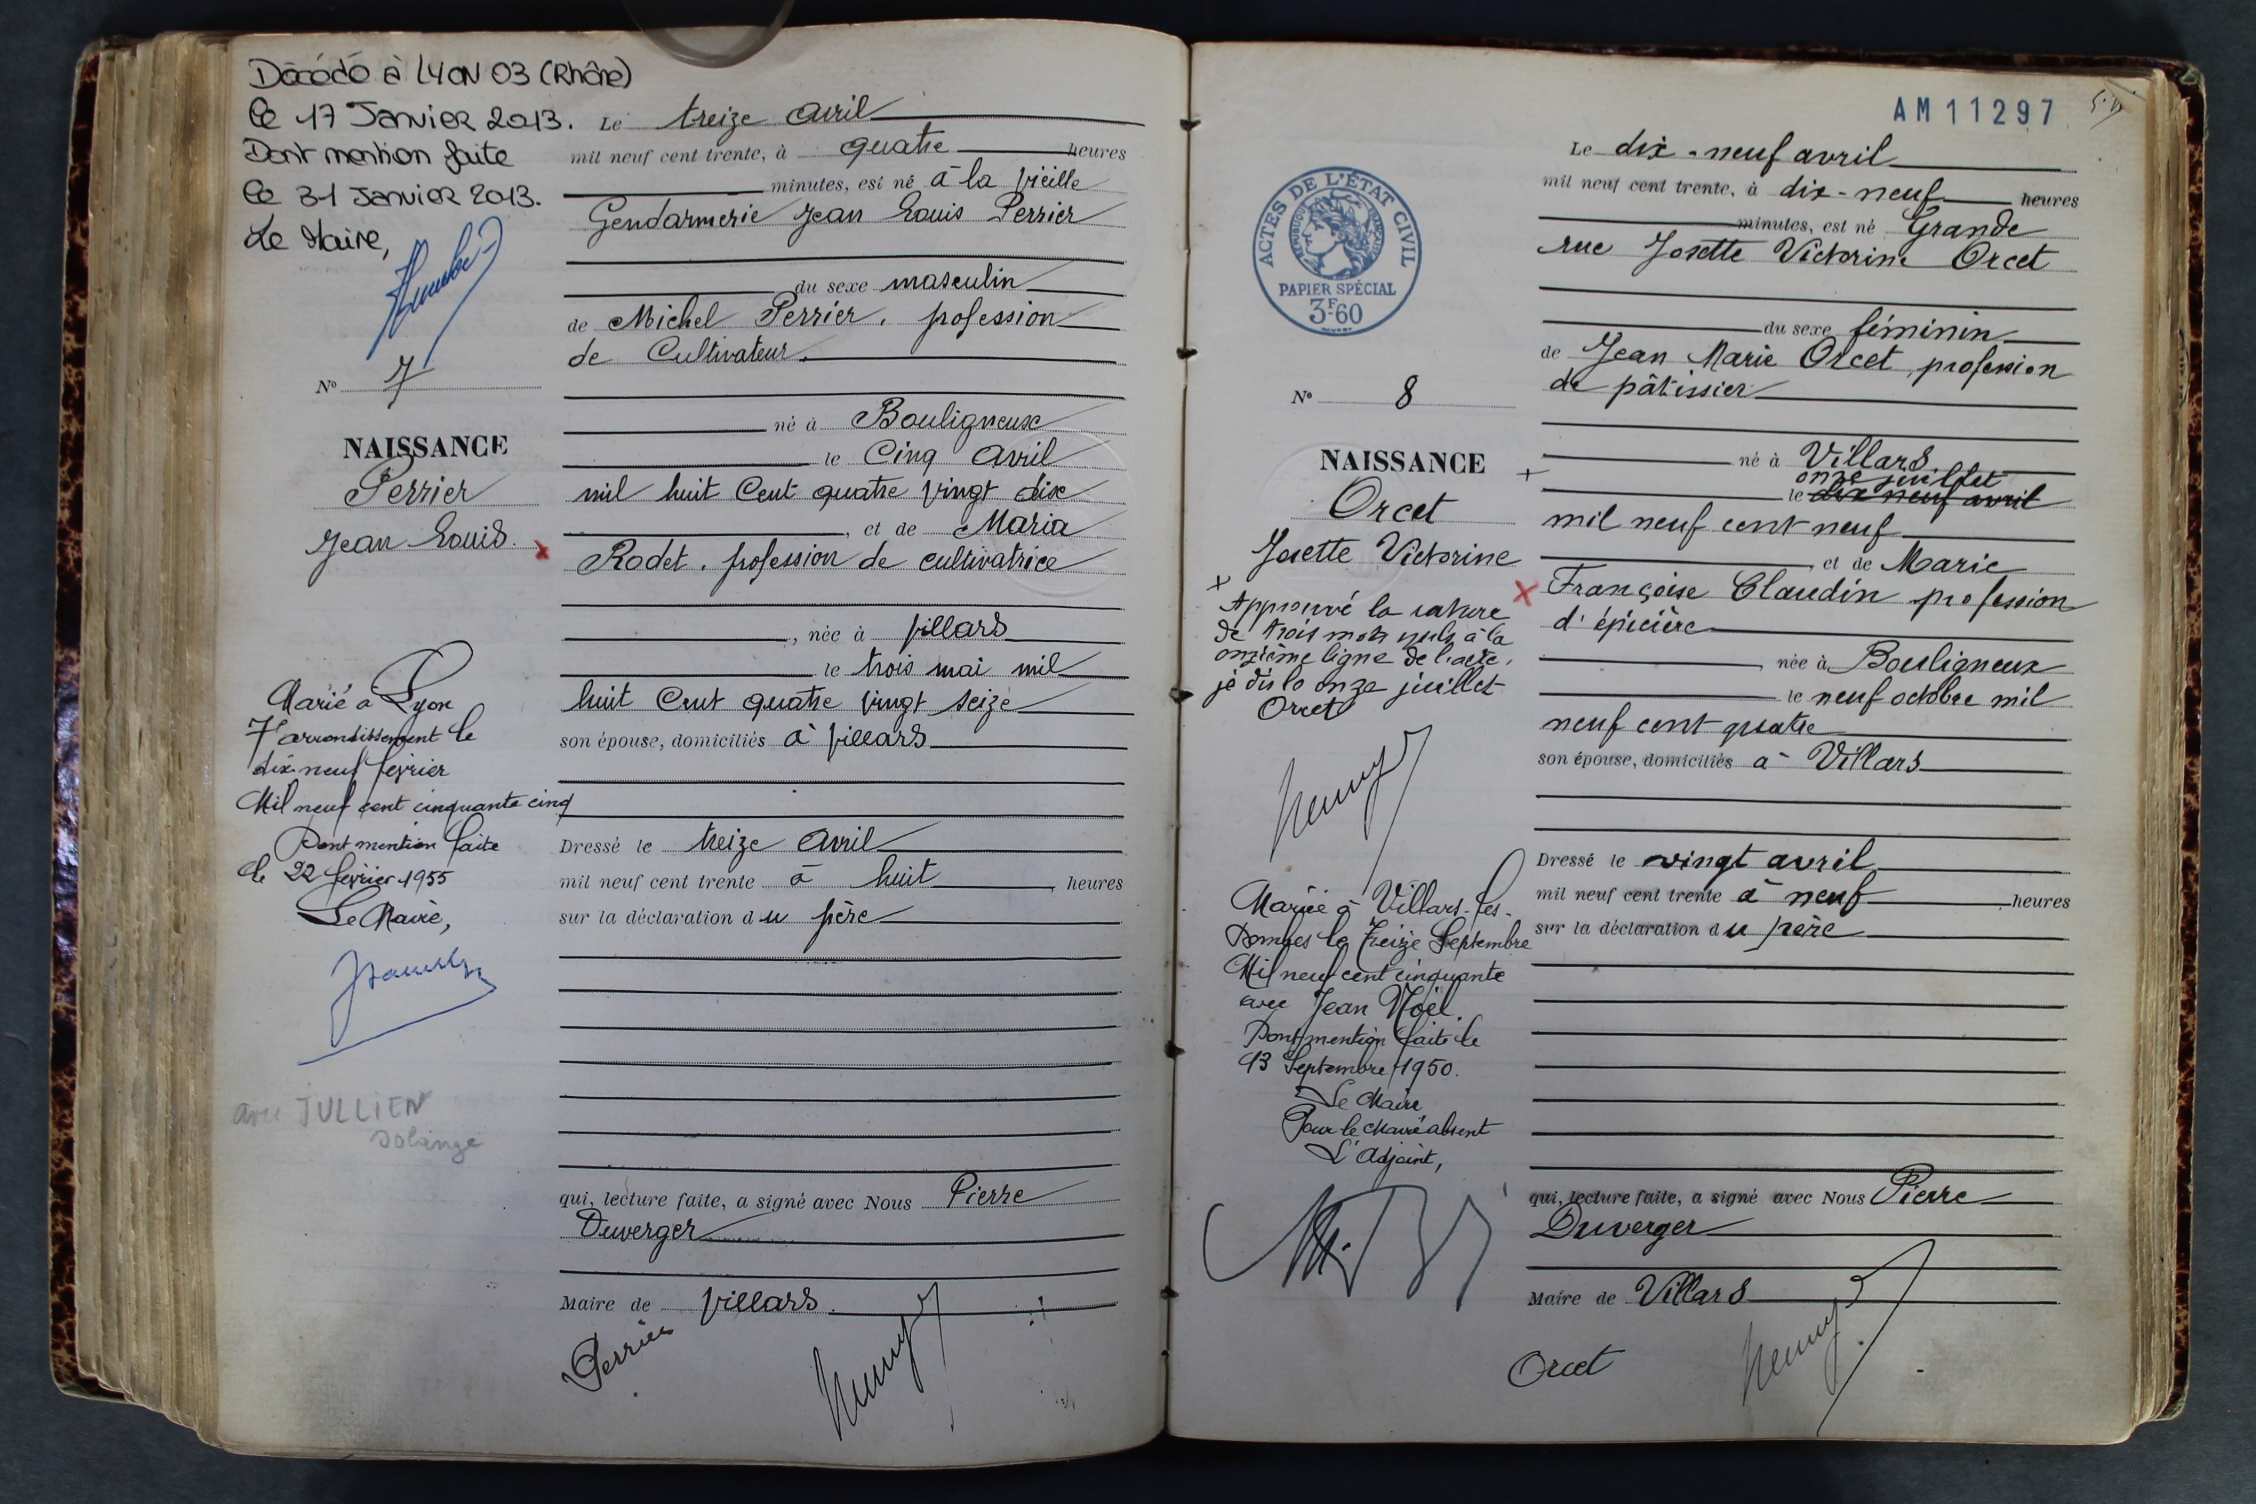 Décédé à LYON 03 (Rhône)
le 17 Janvier 2013.
Dont mention faite
le 31 Janvier 2013.
Le Maire,
No 7
NAISSANCE
Perrier
Jean Louis
Marié à Lyon
7e arrondissement le
dix-neuf février
Mil neuf cent cinquante cinq
Dont mention faite
le 22 février 1955
Le Maire,
avec JULLIEN
Solange
Le treize avril
mil neuf cent trente, à quatre heures
minutes, est né à la vieille
Gendarmerie Jean Louis Perrier
du sexe masculin
de Michel Perrier, profession
de Cultivateur.
né à Bouligneux
le Cinq avril
mil huit Cent quatre vingt dix
, et de Maria
Rodet, profession de cultivatrice
, née à Villars
le trois mai mil
huit Cent quatre vingt seize
son épouse, domiciliés à Villars
Dressé le treize avril
mil neuf cent trente à huit heures
sur la déclaration du père
qui, lecture faite, a signé avec Nous Pierre
Duverger
Maire de Villars.
Perrier
AM11297
ACTES DE L'ÉTAT CIVIL
RÉPUBLIQUE FRANÇAISE
PAPIER SPÉCIAL
3F60
No 8
NAISSANCE
Orcet
Josette Victorine
+
Approuvé la rature
de trois mots nuls à la
onzième ligne de l'acte,
je dis le onze juillet
Orcet
Mariée à Villars-les-
Dombes le treize Septembre
Mil neuf cent cinquante
avec Jean Noël.
Dont mention faite le
13 Septembre 1950.
Le Maire
Pour le Maire absent
L'Adjoint,
Le dix-neuf avril
mil neuf cent trente, à dix-neuf heures
minutes, est né Grande
rue Josette Victorine Orcet
du sexe féminin
de Jean Marie Orcet, profession
de pâtissier
né à Villars.
+ onze juillet
le dix neuf avril
mil neuf cent neuf
et de Marie
Françoise Claudin profession
d'épicière
née à Bouligneux
le neuf octobre mil
neuf cent quatre
son épouse, domiciliés à Villars
Dressé le vingt avril
mil neuf cent trente à neuf heures
sur la déclaration du père
qui, lecture faite, a signé avec Nous Pierre
Duverger
Maire de Villars
Orcet